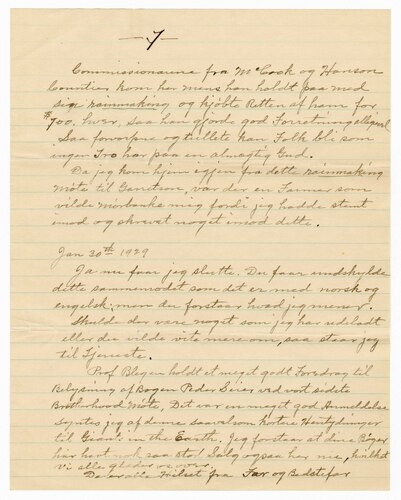 7
Commissionærne fra McCook og Hanson
Counties kom her mens han holdt paa med
sin rainmaking og kjøbte Retten af ham for
$700. hver. Saa han gjorde god Forretning alligevel
Saa forvorpne og tullete kan Folk bli som
ingen Tro har paa en almægtig Gud.
Da jeg kom hjem igjen fra dette rainmaking
möte til var der en Farmer som
vilde mig fordi jeg hadde stemt
imod og skrevet noget imod dette.
Jan 30th 1929
Ja nu faar jeg slutte. Du faar undskylde
dette sammenrodet som det er med norsk og
engelsk, men du forstaar hvad jeg mener.
Skulde der være noget som jeg har udeladt
eller du vilde vite mere om, saa staar jeg
til Tjeneste.
Prof Blegen holdt et meget godt Foredrag til
Belysning af Bogen Peder Seier ved vort sidste
Brotherhood Möte. Det var en meget god Anmeldelse
Syntes jeg af denne saavelsom kortere Hentydninger
til Giants in the Earth. Jeg forstaar at disse Böger
har havt nok saa stor Salg ogsaa her nu, hvilket
vi alle glæder os over.
De er alle hilset fra Far og Bedstefar